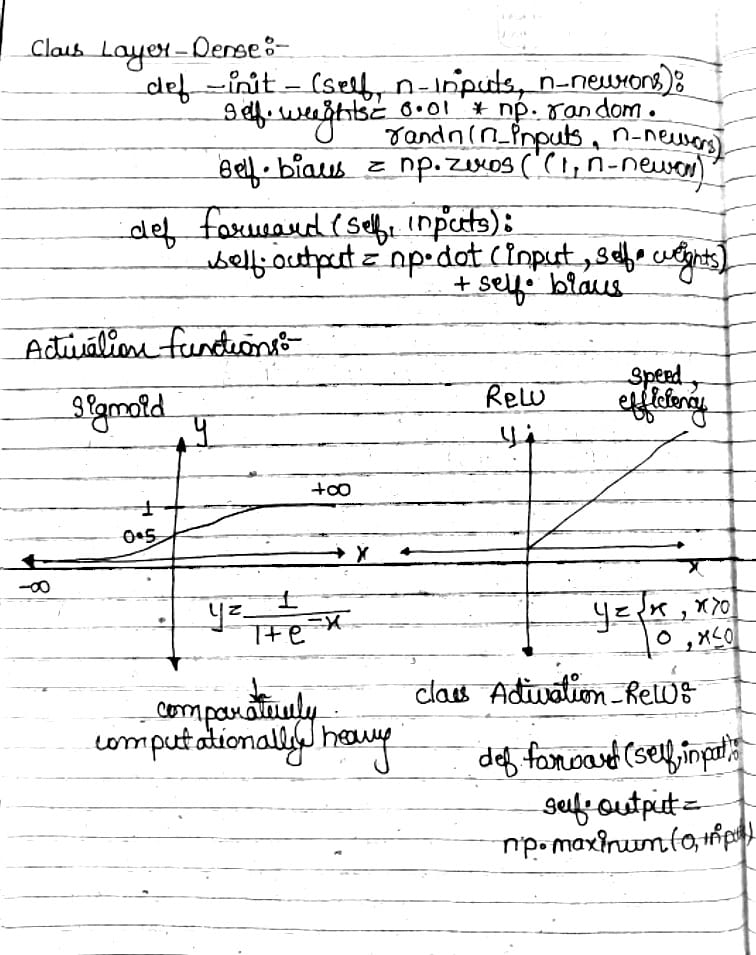 Class Layer-Dense:-
def -init- (self, n-inputs, n-neurons):
self.weights = 0.01 * np.random.
randn(n-inputs, n-neurons)
self.biases = np.zeros((1, n-neuron)
def forward (self, inputs):
self.output = np.dot (input, self.weights)
+ self. biases
Activation functions:-
Sigmoid
y
1
0.5
+∞
x
-∞
y = 1/(1+e^-x)
comparatively
computationally heavy
ReLU
speed,
efficiency
y
x
y = { x , x>0
0 , x≤0
class Activation-ReLU:
def forward (self, input):
self.output =
np.maximum (0, input)